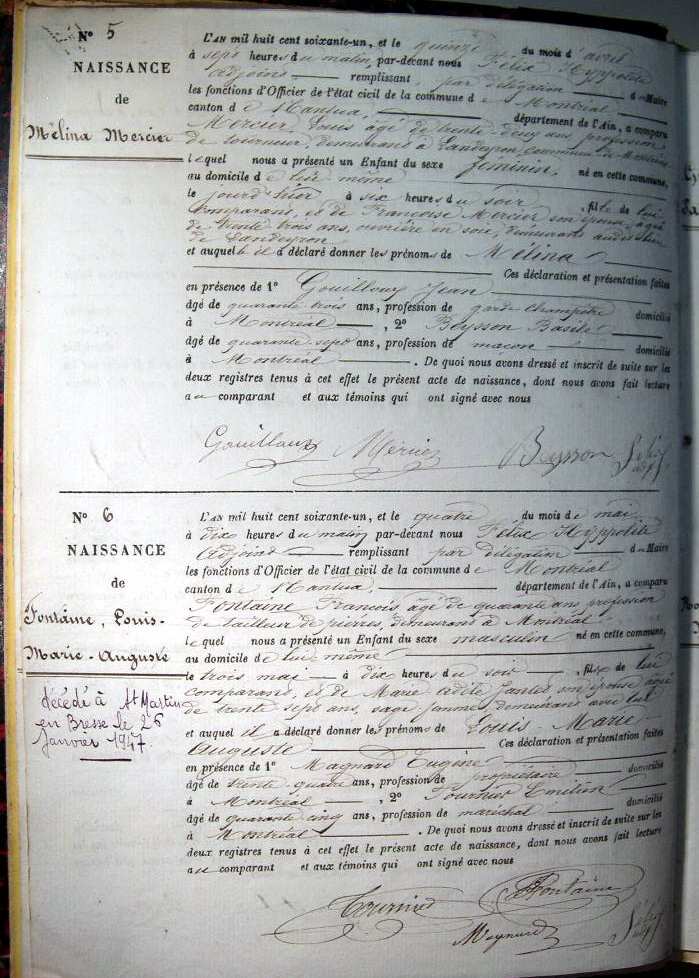 N° 5
NAISSANCE
de
Mélina Mercier
L'AN mil huit cent soixante-un, et le quinze du mois d'avril
à sept heures du matin, par-devant nous Félix Hyppolite
adjoint remplissant par délégation du Maire
les fonctions d'Officier de l'état civil de la commune de Montréal
canton de Nantua, département de l'Ain, a comparu
Mercier Louis âgé de trente deux ans profession
de tourneur, demeurant à Landeyron commune de Montréal
lequel nous a présenté un Enfant du sexe féminin, né en cette commune,
au domicile de lui même
le jourd'hier à six heures du soir, fille de lui
comparant, et de Françoise Mercier son épouse, âgée
de trente trois ans, ouvrière en soie, demeurant audit lieu
de Landeyron
et auquel il a déclaré donner les prénoms de Mélina
Ces déclaration et présentation faites
en présence de 1° Gouilloux Jean
âgé de quarante trois ans, profession de garde champêtre domicilié
à Montréal, 2° Beysson Basile
âgé de quarante sept ans, profession de maçon domicilié
à Montréal. De quoi nous avons dressé et inscrit de suite sur les
deux registres tenus à cet effet le présent acte de naissance, dont nous avons fait lecture
au comparant et aux témoins qui ont signé avec nous
Gouilloux Mercier Beysson Félix
N° 6
NAISSANCE
de
Fontaine, Louis-
Marie-Auguste
décédé à St Martin
en Bresse le 26
Janvier 1947
L'AN mil huit cent soixante-un, et le quatre du mois de mai
à dix heures du matin par-devant nous Félix Hyppolite
Adjoint remplissant par délégation du Maire
les fonctions d'Officier de l'état civil de la commune de Montréal
canton de Nantua, département de l'Ain, a comparu
Fontaine François âgé de quarante ans profession
de tailleur de pierres, demeurant à Montréal
lequel nous a présenté un Enfant du sexe masculin né en cette commune,
au domicile de lui même
le trois mai à dix heures du soir, fils de lui
comparant, et de Marie son épouse âgée
de trente sept ans, sage femme, demeurant avec lui
et auquel il a déclaré donner les prénoms de Louis Marie
Auguste Ces déclaration et présentation faites
en présence de 1° Magnard Eugène
âgé de trente quatre ans, profession de propriétaire domicilié
à Montréal, 2° Tournier Emilien
âgé de quarante cinq ans, profession de maréchal domicilié
à Montréal. De quoi nous avons dressé et inscrit de suite sur les
deux registres tenus à cet effet le présent acte de naissance, dont nous avons fait lecture
au comparant et aux témoins qui ont signé avec nous
Tournier Fontaine
Meynard Félix